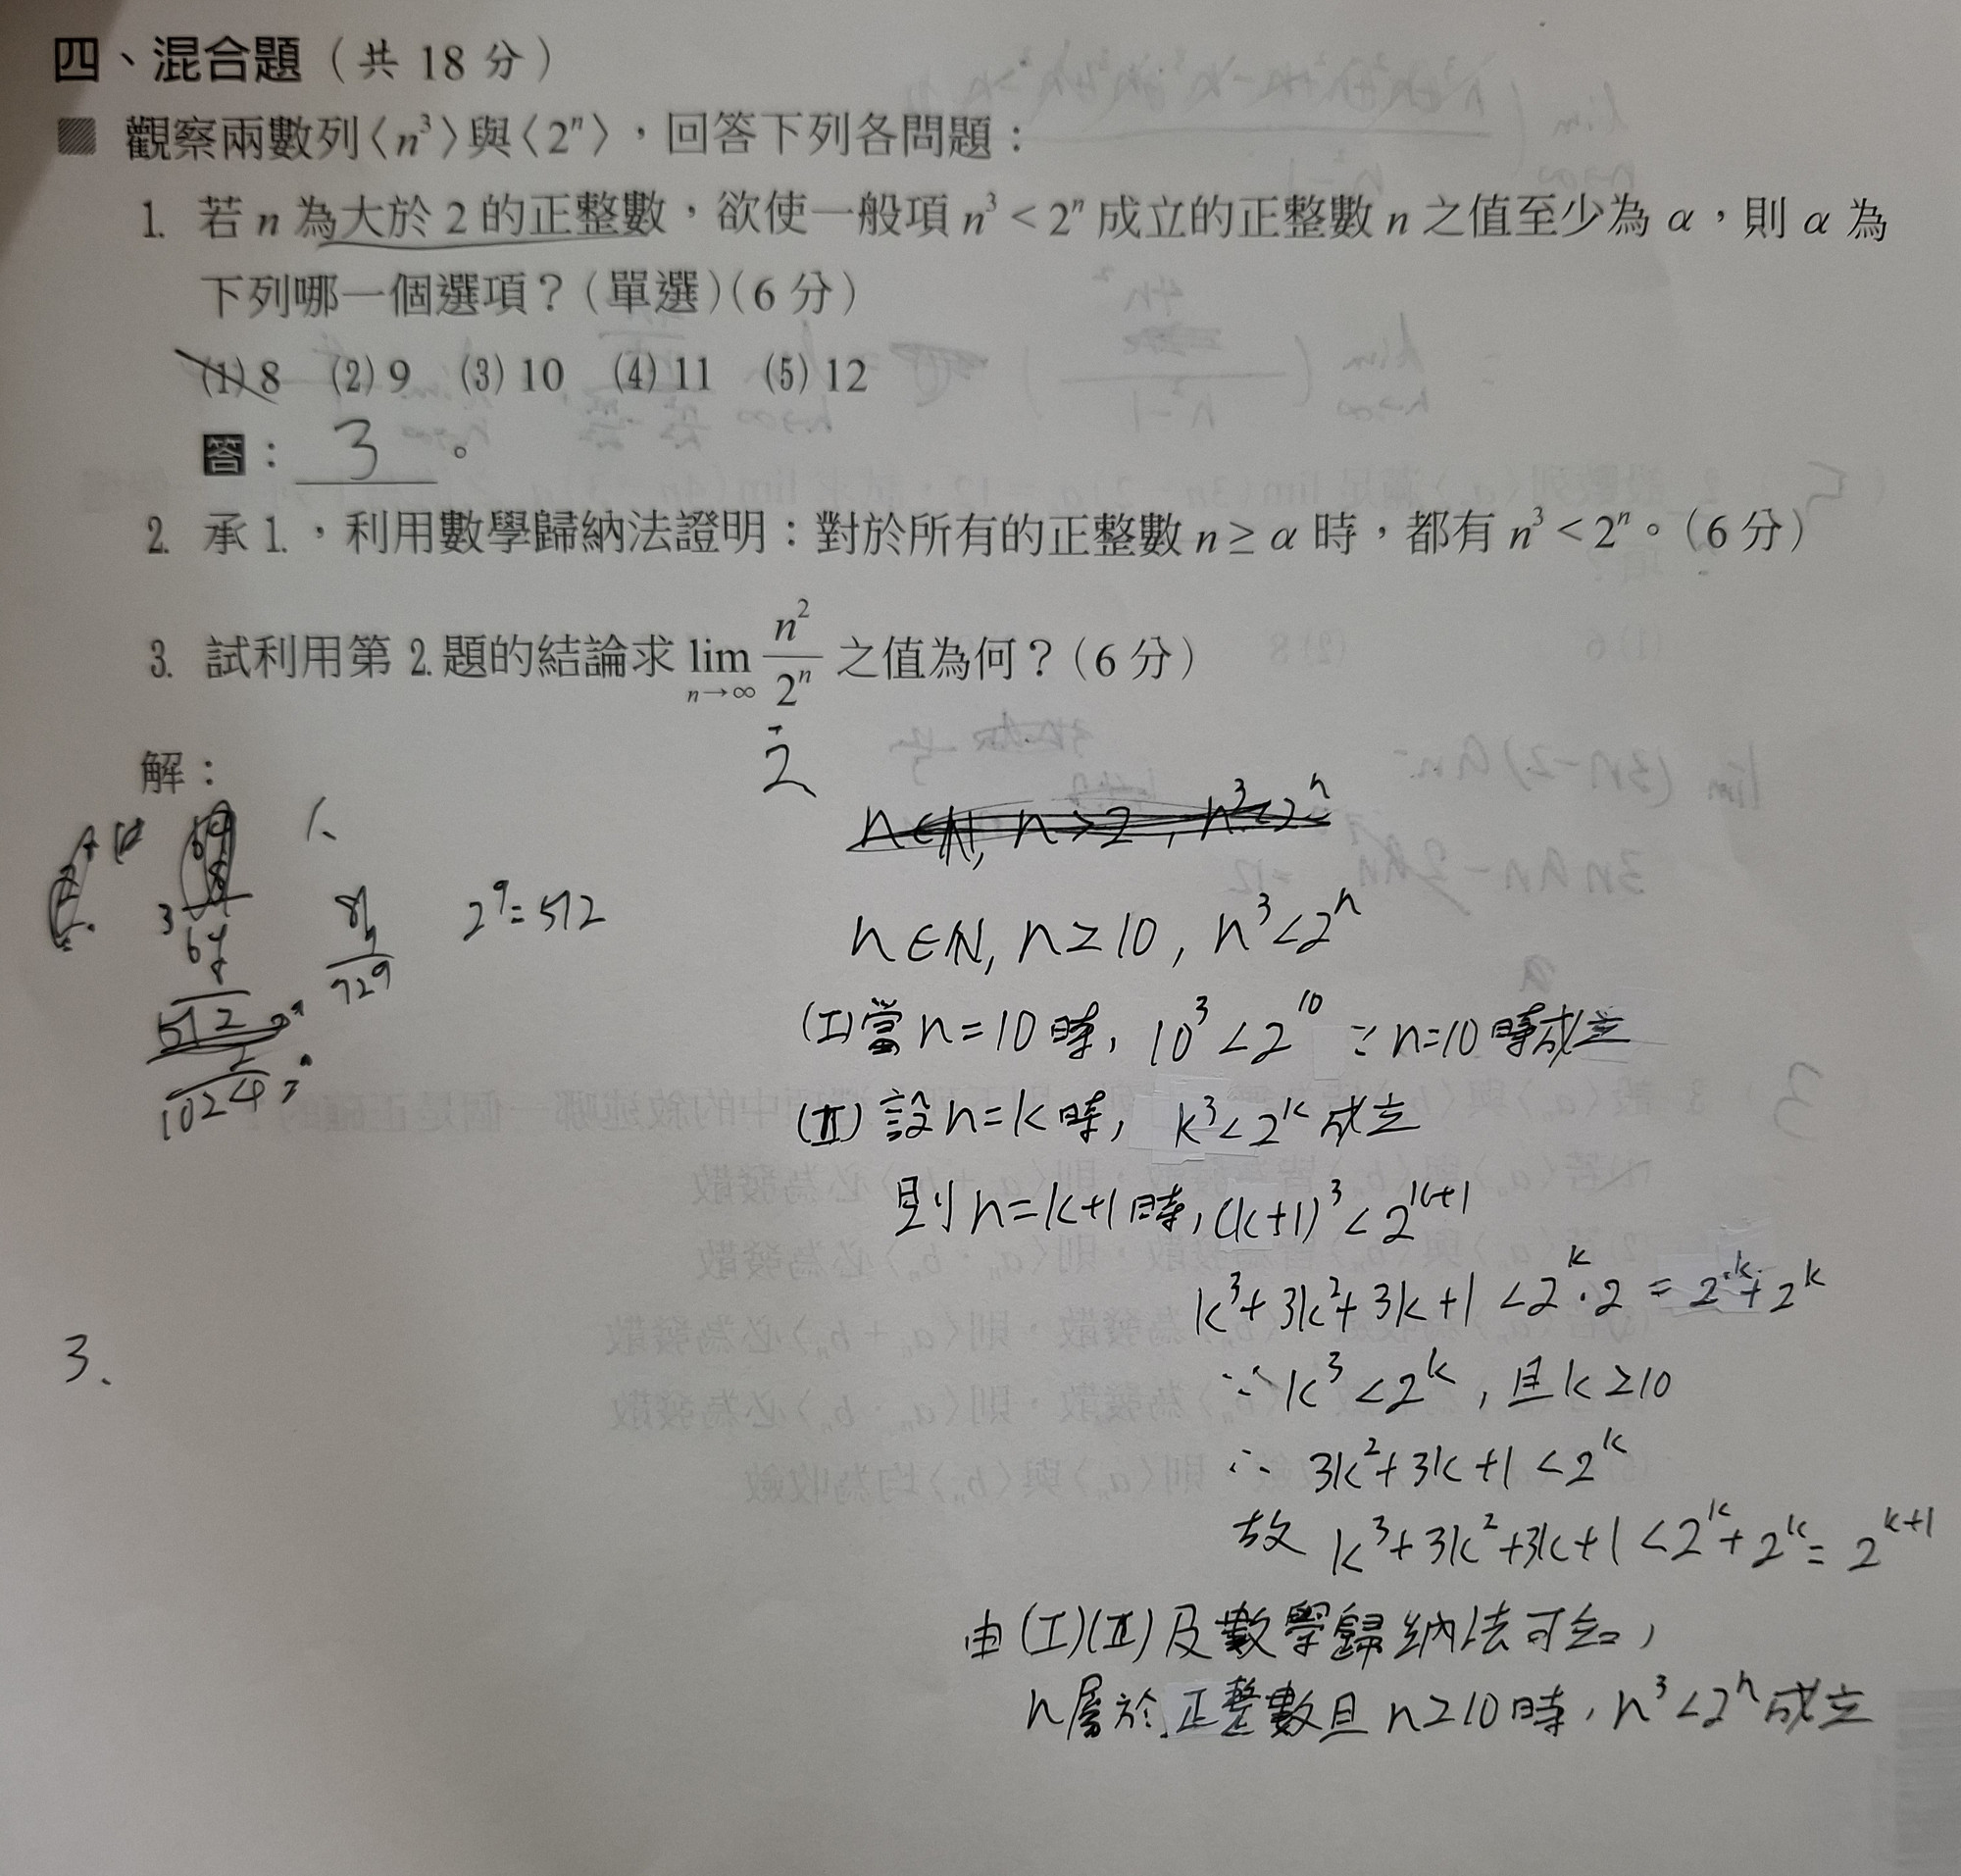 四、混合題（共 18 分）
觀察兩數列〈n³〉與〈2ⁿ〉，回答下列各問題：
1. 若 n 為大於 2 的正整數，欲使一般項 n³ < 2ⁿ 成立的正整數 n 之值至少為 α，則 α 為
下列哪一個選項？（單選）（6 分）
(1) 8 (2) 9 (3) 10 (4) 11 (5) 12
答：3。
2. 承 1.，利用數學歸納法證明：對於所有的正整數 n ≥ α 時，都有 n³ < 2ⁿ。（6 分）
3. 試利用第 2. 題的結論求 lim n→∞ n²/2ⁿ 之值為何？（6 分）
解：
2
n∈N, n>2, n³<2ⁿ
729
2⁹=512
512
1024
n∈N, n≥10, n³<2ⁿ
(I) 當 n=10 時, 10³<2¹⁰ ∵ n=10 時成立
(II) 設 n=k 時, k³<2ᵏ 成立
則 n=k+1 時, (k+1)³<2ᵏ⁺¹
k³+3k²+3k+1<2ᵏ·2=2ᵏ+2ᵏ
∵ k³<2ᵏ, 且 k≥10
∴ 3k²+3k+1<2ᵏ
故 k³+3k²+3k+1<2ᵏ+2ᵏ=2ᵏ⁺¹
由(I)(II)及數學歸納法可知,
n屬於正整數且 n≥10 時, n³<2ⁿ 成立
3、